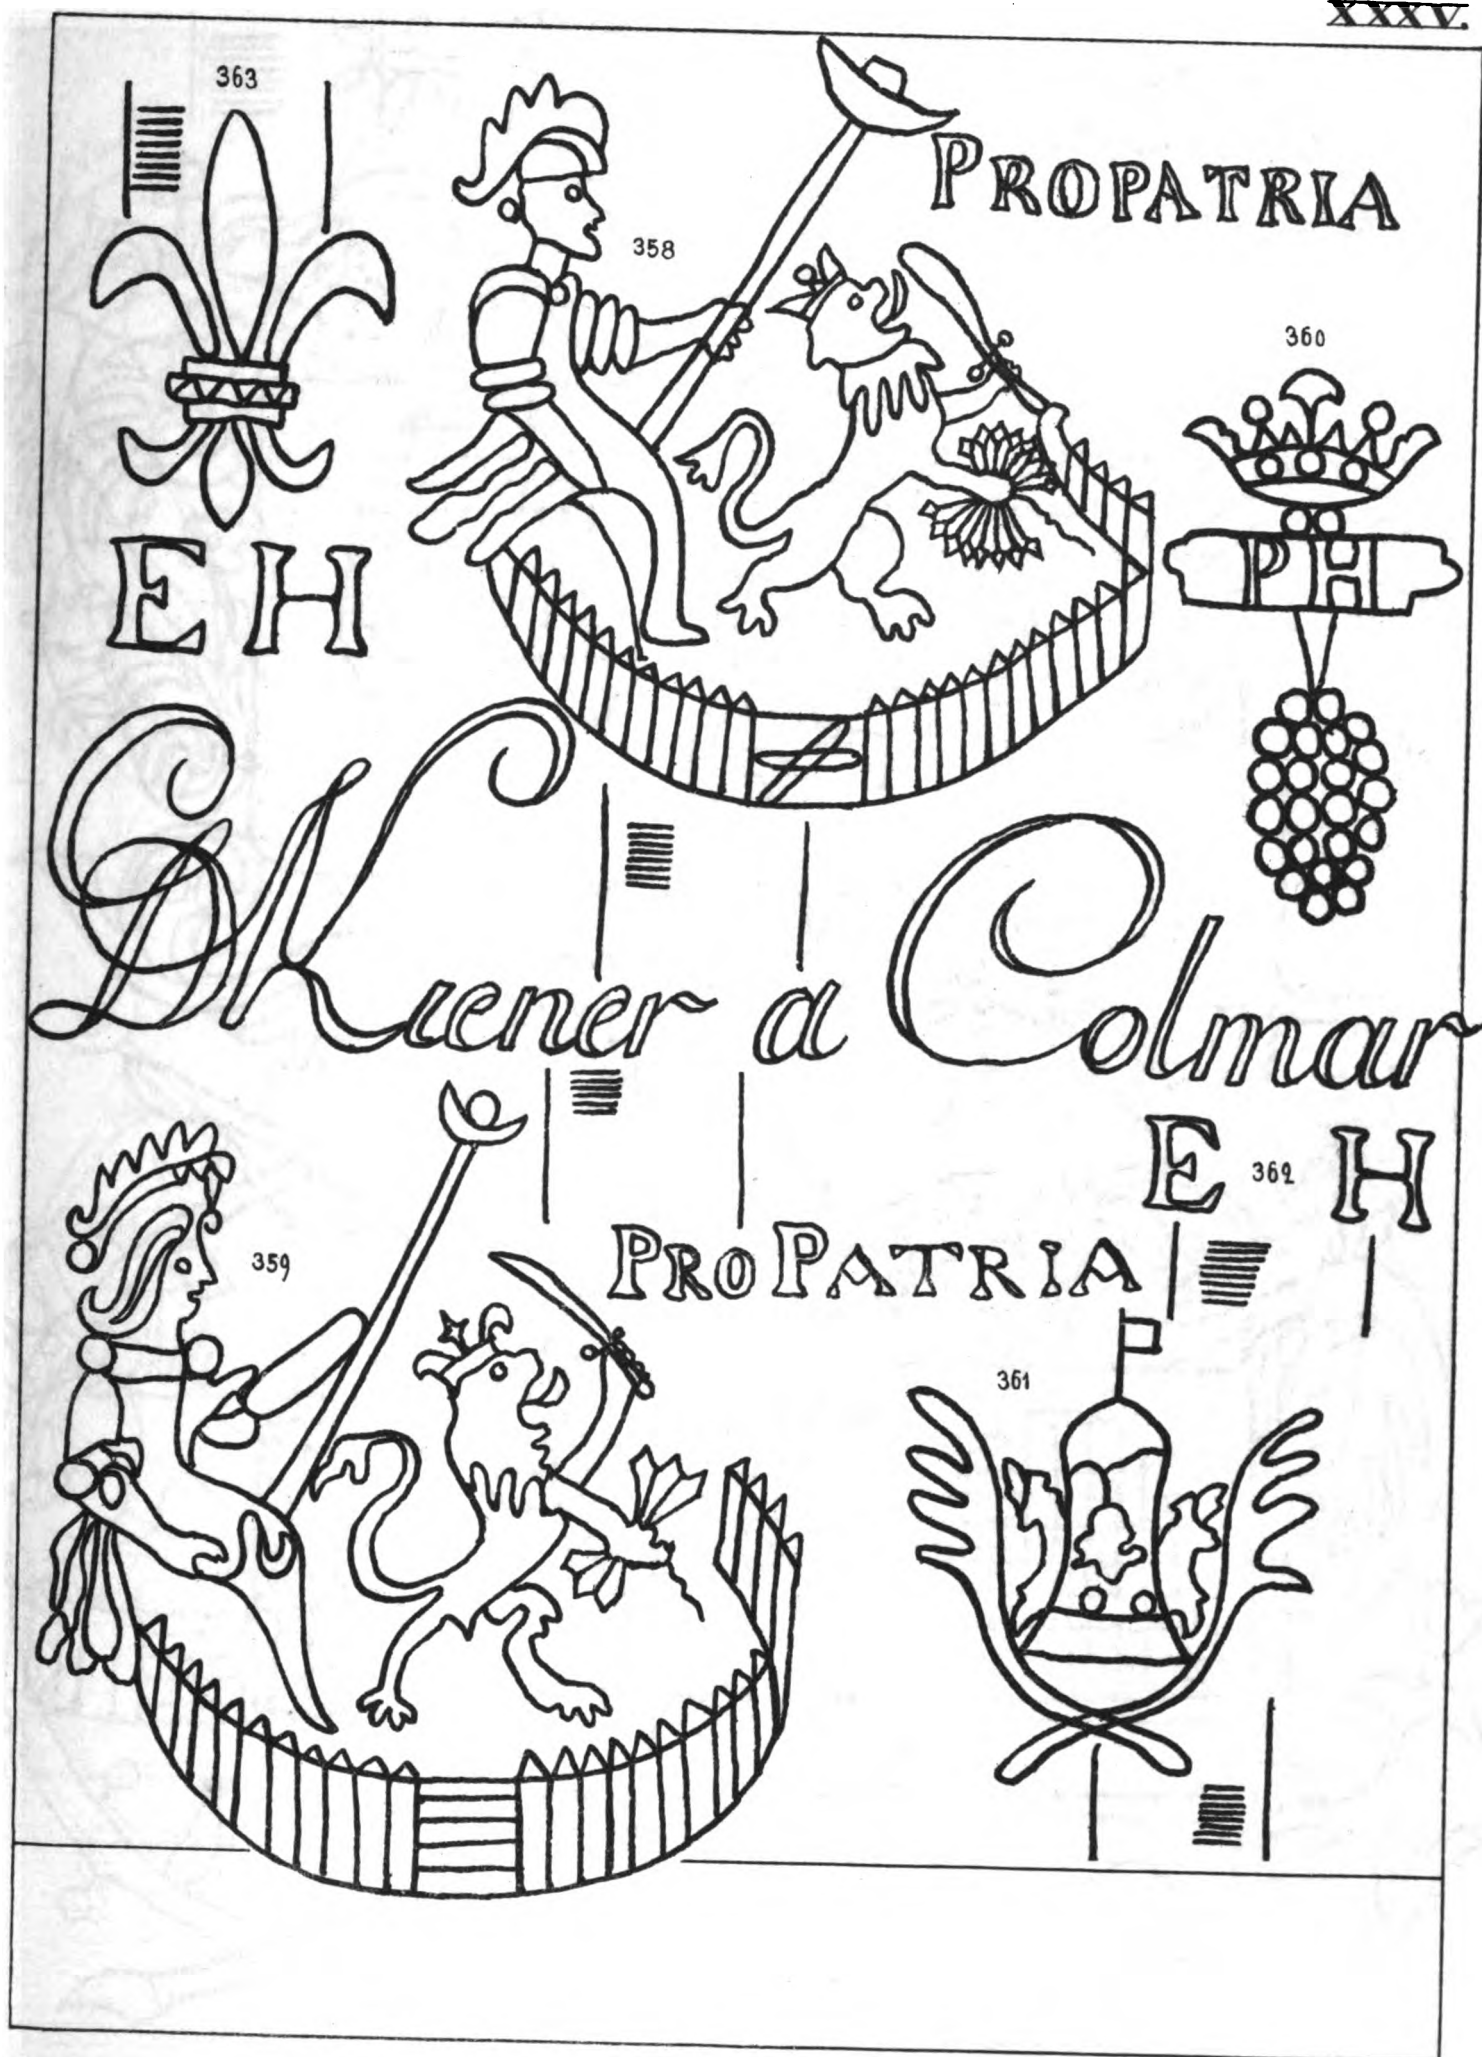 XXXV.
363
PROPATRIA
358
360
EH
PH
Kiener a Colmar
E 362 H
359
PROPATRIA
361